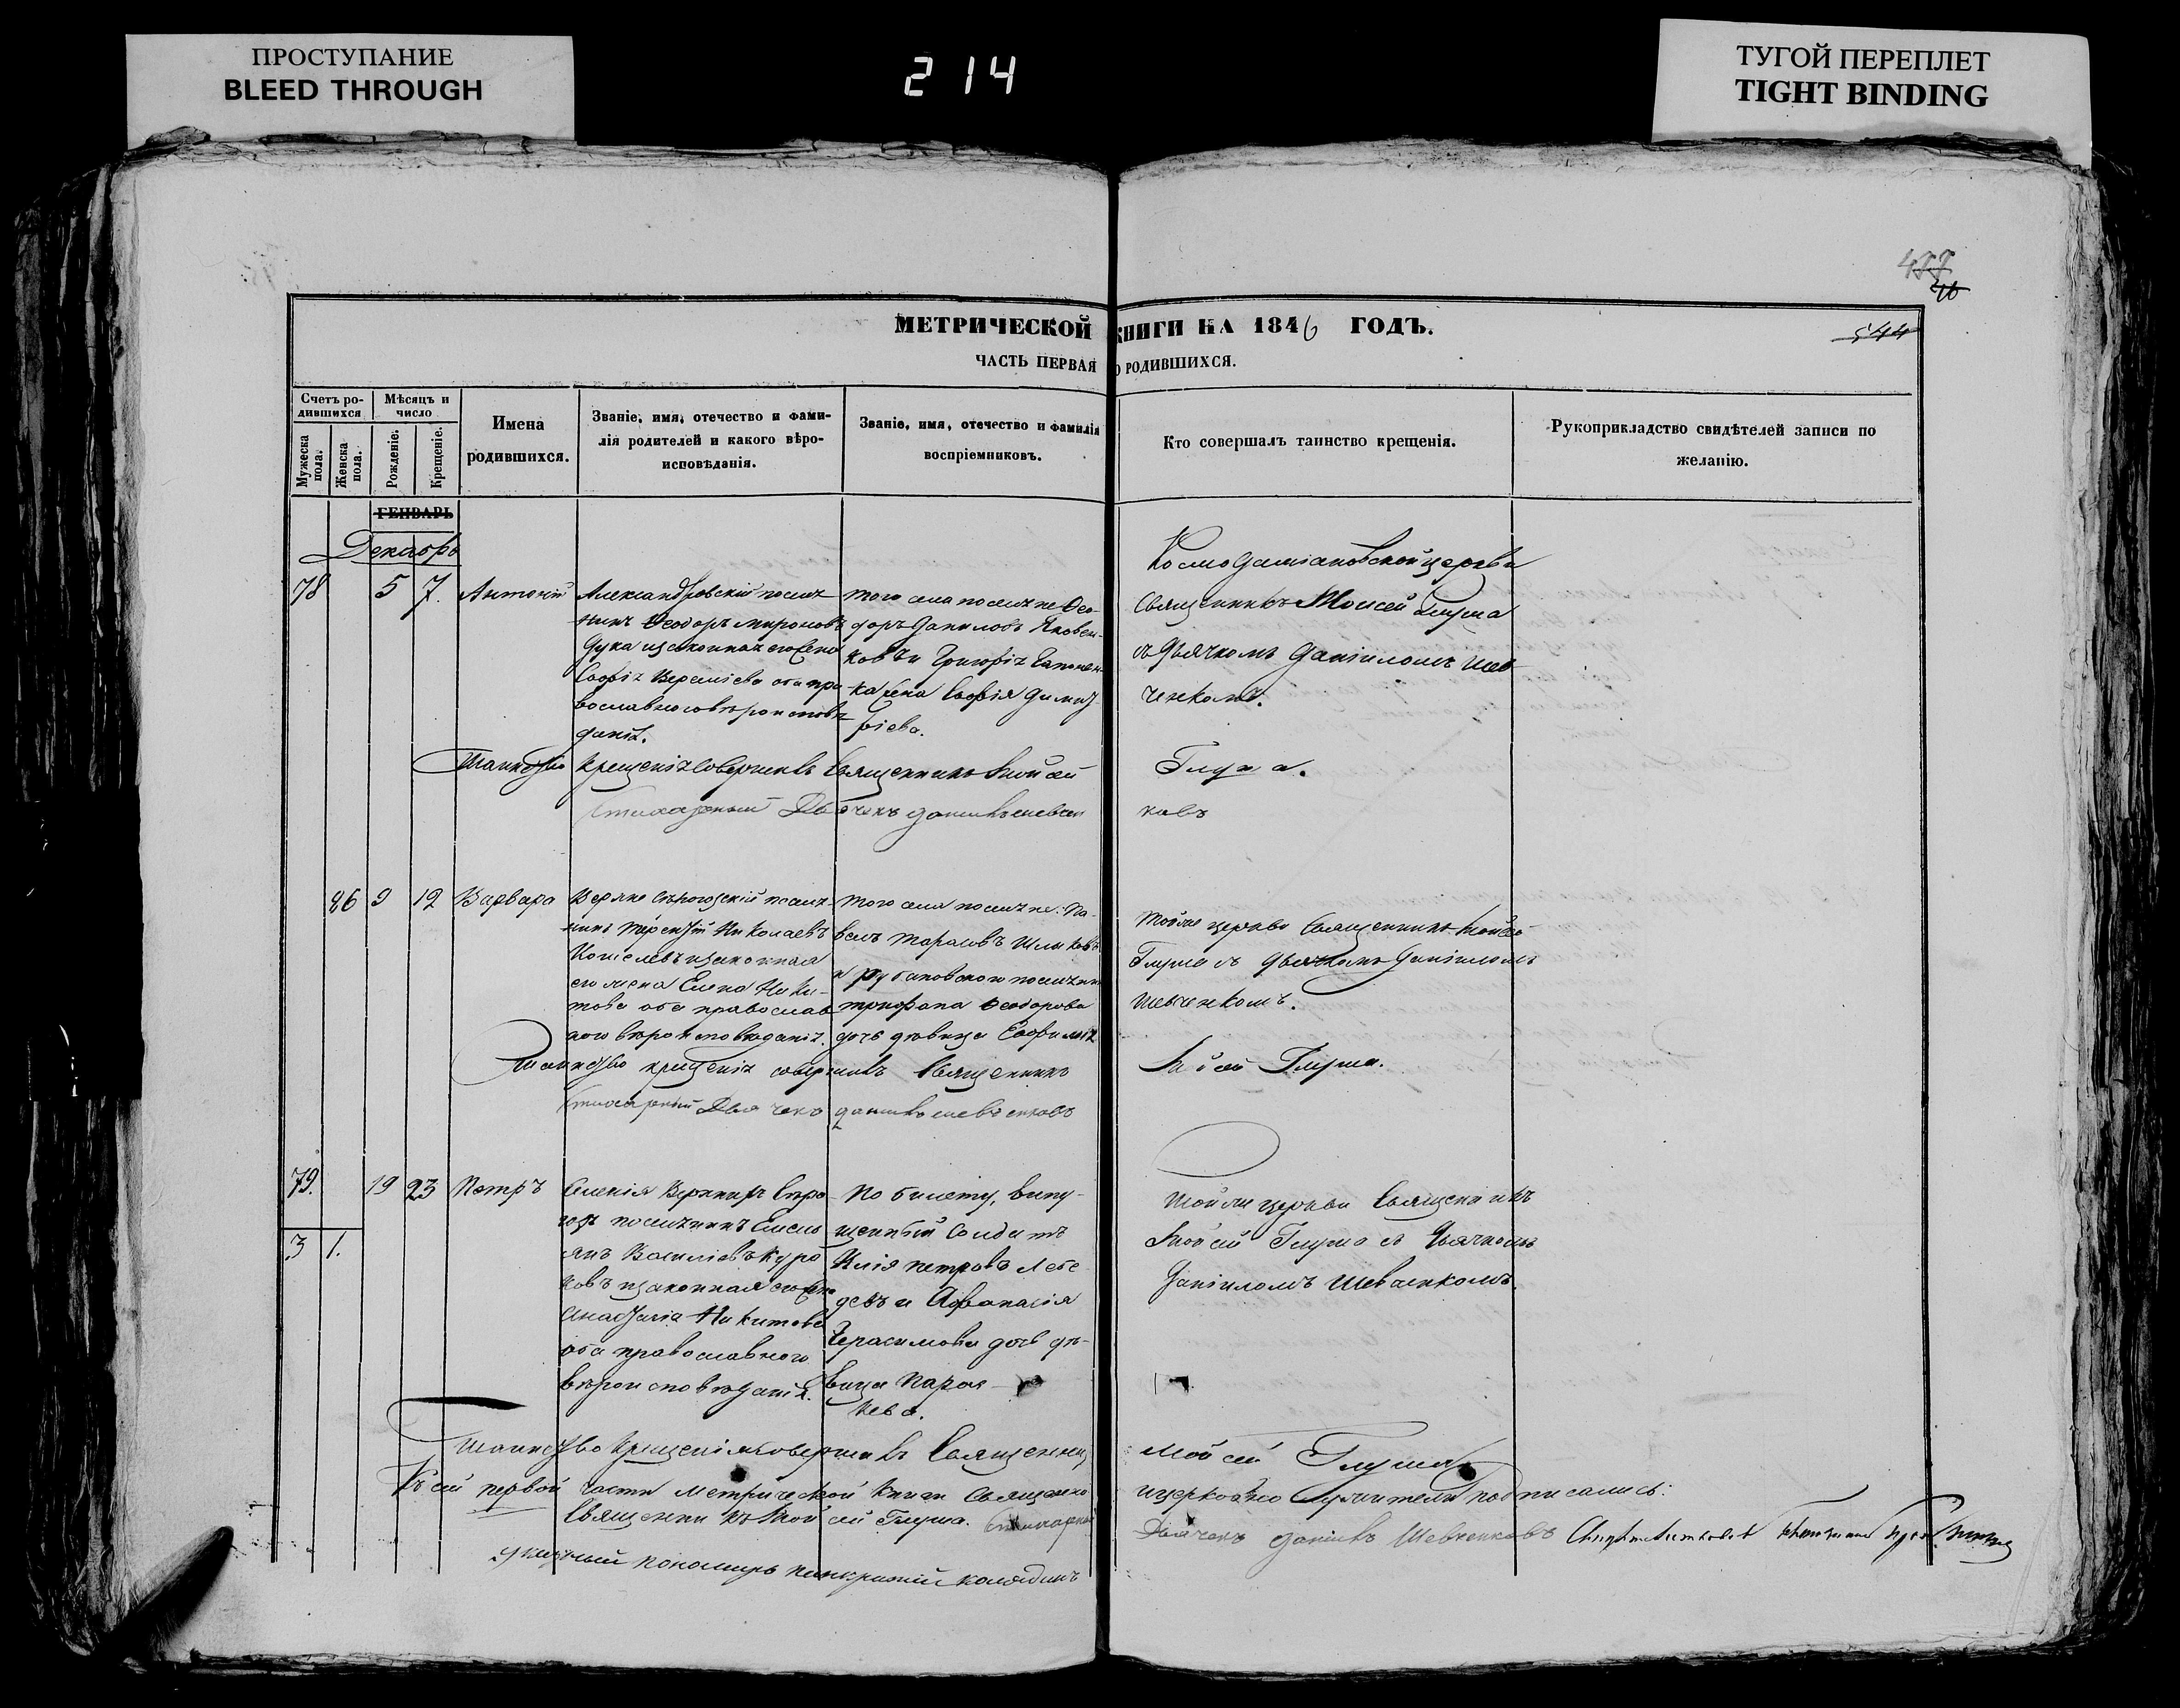 ПРОСТУПАНИЕ
BLEED THROUGH
214
ТУГОЙ ПЕРЕПЛЕТ
TIGHT BINDING
477
544
МЕТРИЧЕСКОЙ КНИГИ НА 1846 ГОДЪ.
ЧАСТЬ ПЕРВАЯ О РОДИВШИХСЯ.
Счетъ ро-
дившихся
Мужеска
пола.
Женска
пола.
Мѣсяцъ и
число
Рожденіе.
Крещеніе.
Имена
родившихся.
Званіе, имя, отечество и фами-
лія родителей и какого вѣро-
исповѣданія.
Званіе, имя, отечество и фамилія
воспріемниковъ.
Кто совершалъ таинство крещенія.
Рукоприкладство свидѣтелей записи по
желанію.
ГЕНВАРЬ
Декабрь
78
5
7.
Антоній
Александровскій поселя
нинъ Ѳеодоръ Мироновъ
Дука и законная его жена
Софія
оба пра
вославнаго вѣроисповѣ
данія.
того села поселяне Ѳео-
доръ Даниловъ Яковен-
ковъ и Григорія
ка жена Софія Димит
ріева.
Космодаміановской церкви
Священникъ Моисей Глума
съ Дьячкомъ Даніиломъ Шев
ченкомъ.
Таинство крещенія совершивъ Священникъ Мойсей Глума.
Стихарный Дьячекъ Данилъ Шевчен ковъ
86
9
12
Варвара
поселя-
нинъ Терентій Николаевъ
Кошелевъ и законная
его жена Елена Ники-
това оба православ
ного вѣроисповѣданія.
того села поселяне: Па-
велъ Тарасовъ
и Рубановского поселянин
Трифона Ѳеодорова
дочь дѣвица Евфимія
тойже церкви Священникъ Мойсей
Глума съ Дьячкомъ Даніиломъ
Шевченкомъ.
Таинство крещенія совершивъ Священникъ Мойсей Глума.
Стихарный Дьячекъ Данилъ Шевченковъ
79.
19
23
Петръ
3
1.
Селенія
поселянинъ Емель
янъ Василіевъ Кура
ковъ и законная его жена
Анастасія Никитова
оба православного
вѣроисповѣданія.
По билету, выпу-
щенный Солдатъ
Илія Петровъ Лебе
девъ и Афанасія
Герасимова дочь дѣ-
вица Парас-
кева.
тойже церкви Священникъ
Мойсей Глума съ Дьячкомъ
Даніиломъ Шевченкомъ.
Таинство Крещенія совершивъ Священникъ Мойсей Глума
Къ сей первой части Метрической Книги Священно и церковно служители подписались:
Священникъ Мойсей Глума. Стихарный Дьячекъ Данилъ Шевченковъ
Указный Пономарь Панкратій Калядинъ